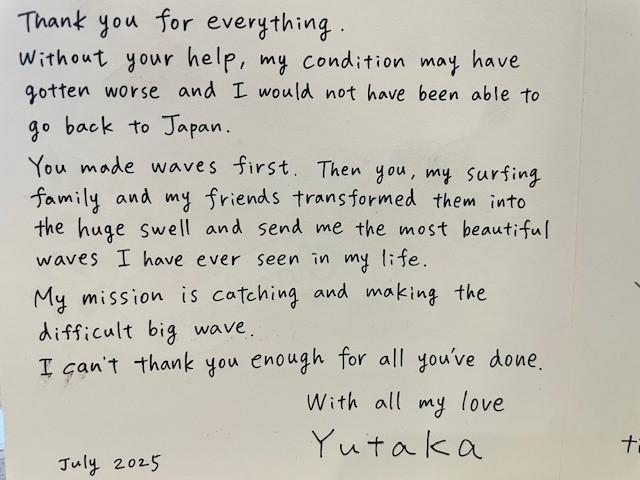 Thank you for everything.
Without your help, my condition may have
gotten worse and I would not have been able to
go back to Japan.
You made waves first. Then you, my surfing
family and my friends transformed them into
the huge swell and send me the most beautiful
waves I have ever seen in my life.
My mission is catching and making the
difficult big wave.
I can't thank you enough for all you've done.
With all my love
Yutaka
July 2025